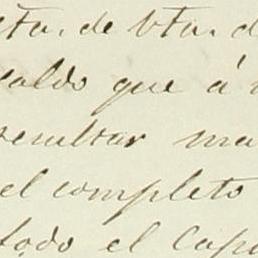 cta. de vta. d
saldo que á
resultar ma
el completo
todo el Capi